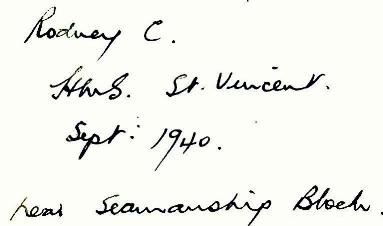 Rodney C.
HMS. St. Vincent.
Sept: 1940.
near Seamanship Block.